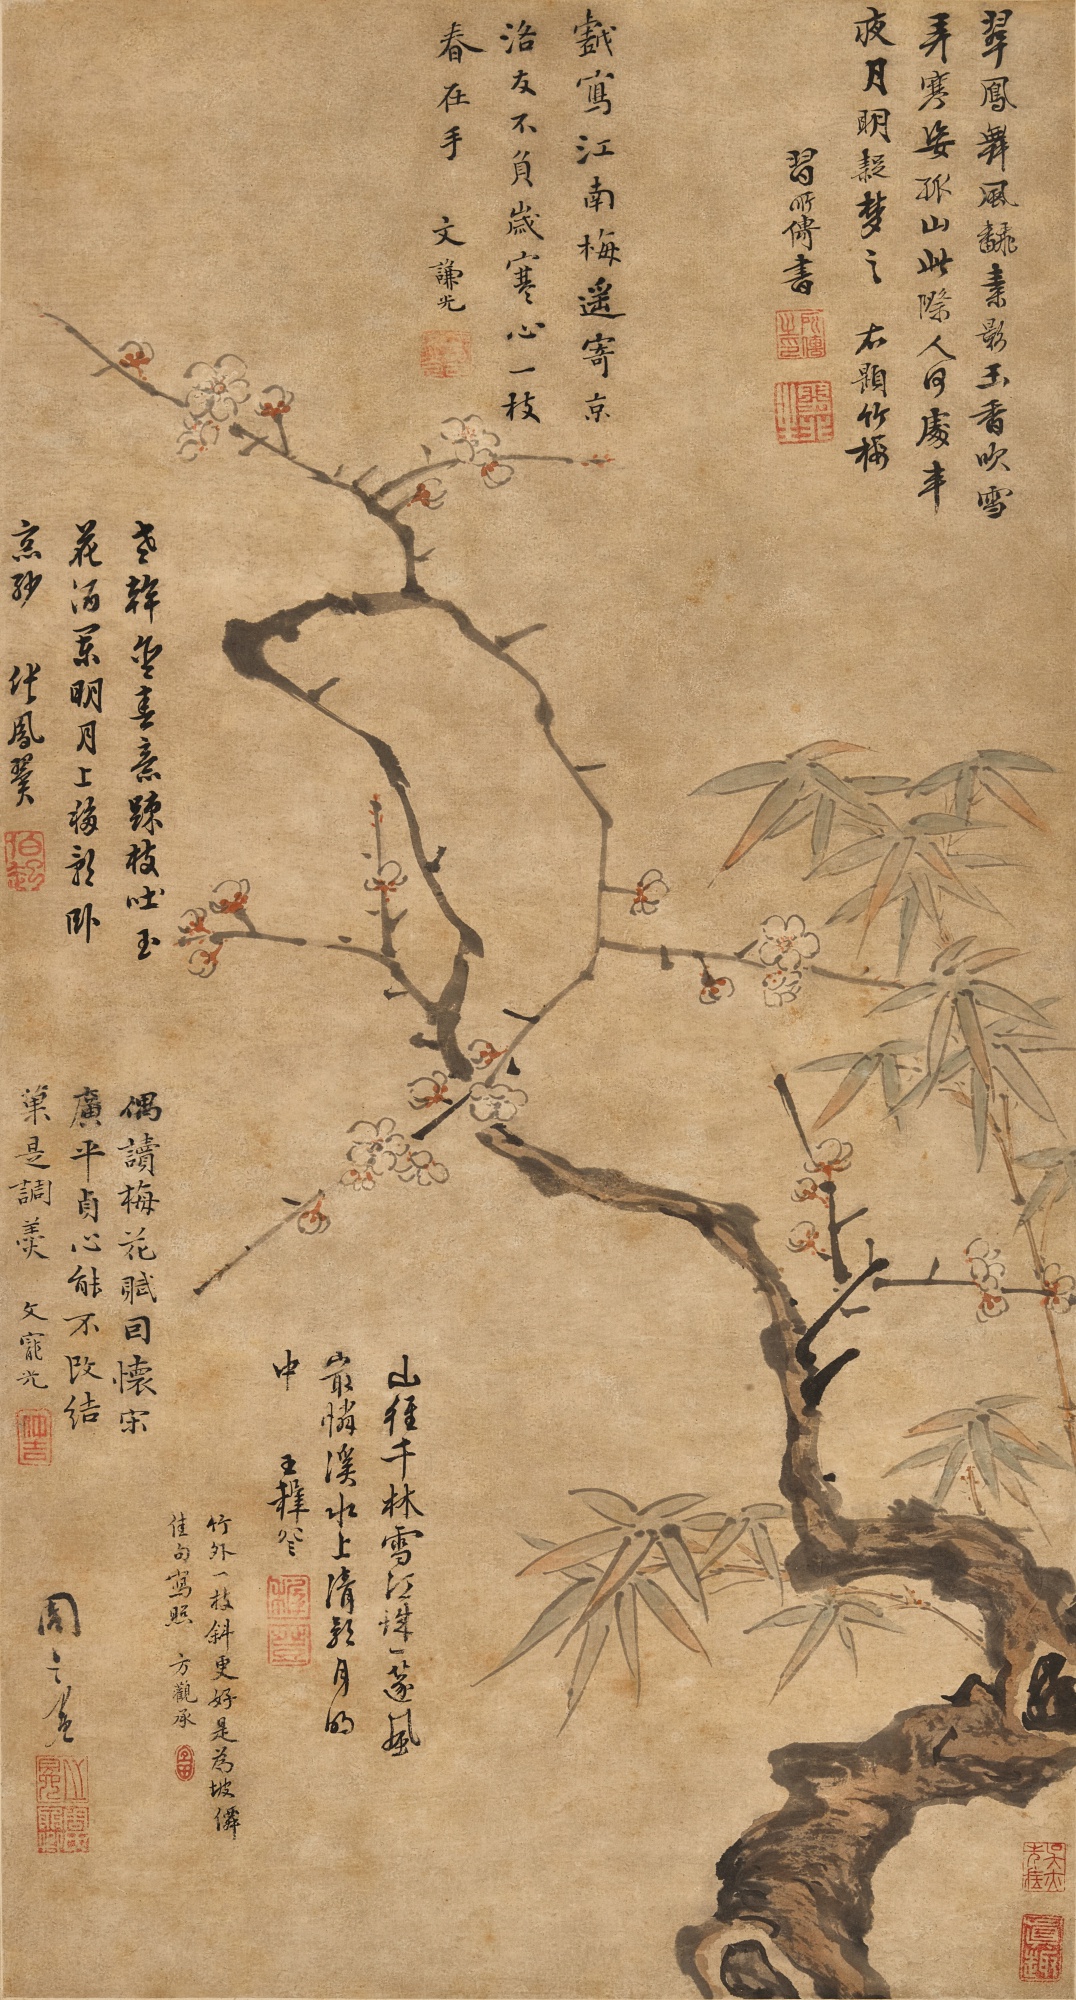 翠鳳舞風翻素影玉香吹雪
弄寒姿孤山此際人何處半
夜月明
右題竹梅
習所傳書
戲寫江南梅遥寄京
洛友不負歲寒心一枝
春在手
文謙光
老幹金春意踈枝吐玉
花酒闌明月上梅影卧
窓紗
張鳳翼
伯起
偶讀梅花賦因懷宋
廣平貞心能不改結
菓是調羹
文寵光
山徑千林雪江城一篴風
最憐溪水上清影月明
中
王穉登
竹外一枝斜更好是為坡僊
佳句寫照
方觀承
周之冕